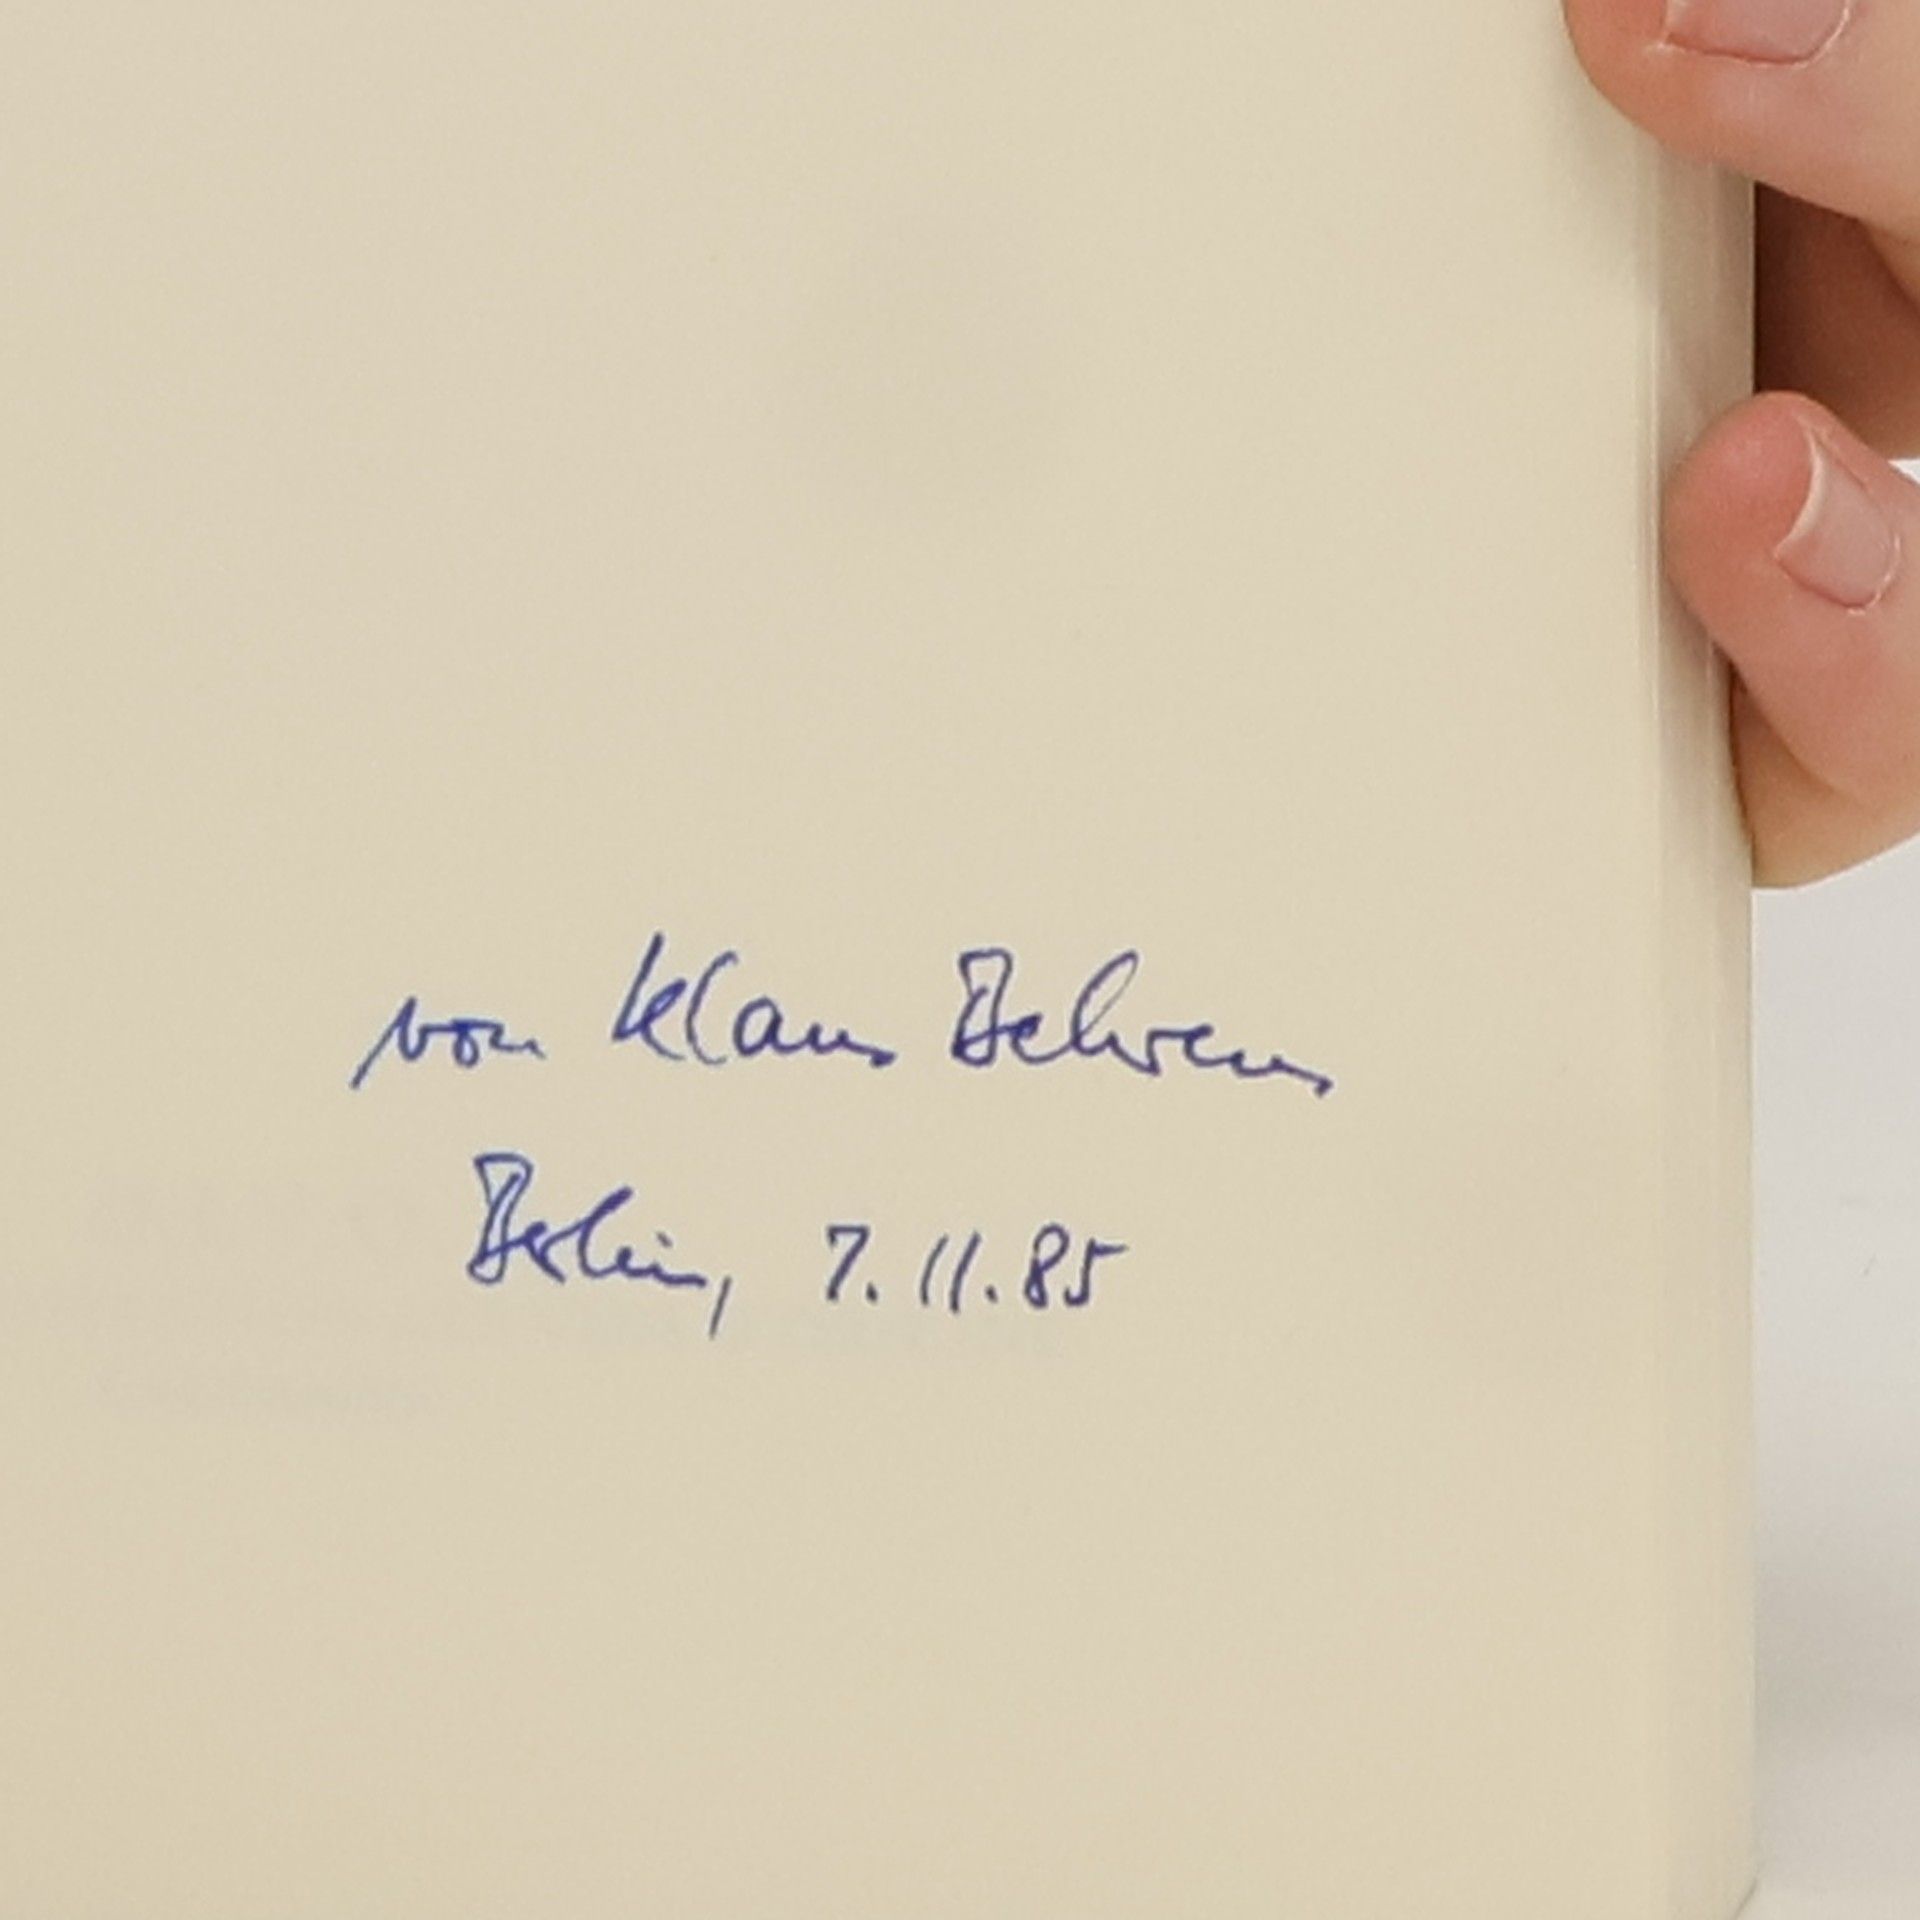 von Klaus Behrens
Berlin, 7.11.85